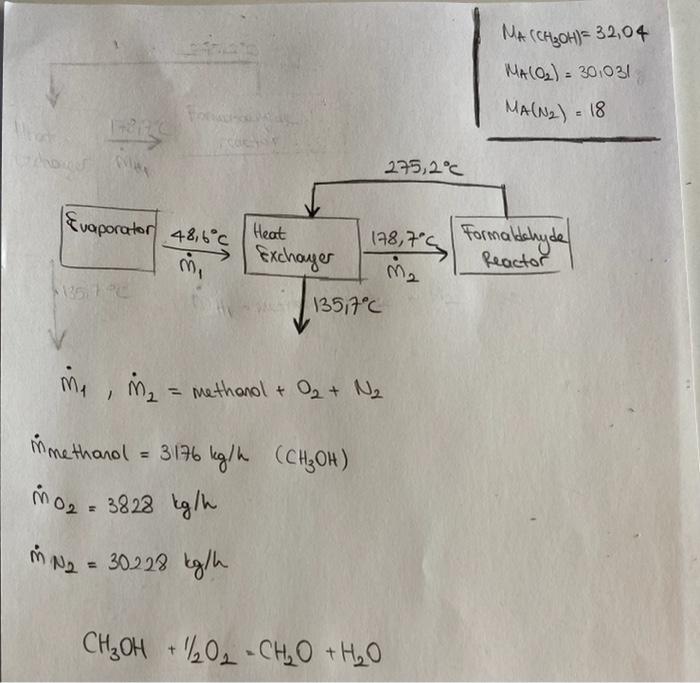 MA (CH₃OH) = 32,04
MA(O₂) = 30,031
MA(N₂) = 18
275,2°C
Evaporator
48,6°C
ṁ₁
Heat
Exchayer
178,7°C
ṁ₂
Formaldehyde
Reactor
135,7°C
ṁ₁ , ṁ₂ = methanol + O₂ + N₂
ṁmethanol = 3176 kg/h (CH₃OH)
ṁO₂ = 3828 kg/h
ṁN₂ = 30228 kg/h
CH₃OH + 1/2O₂ = CH₂O + H₂O